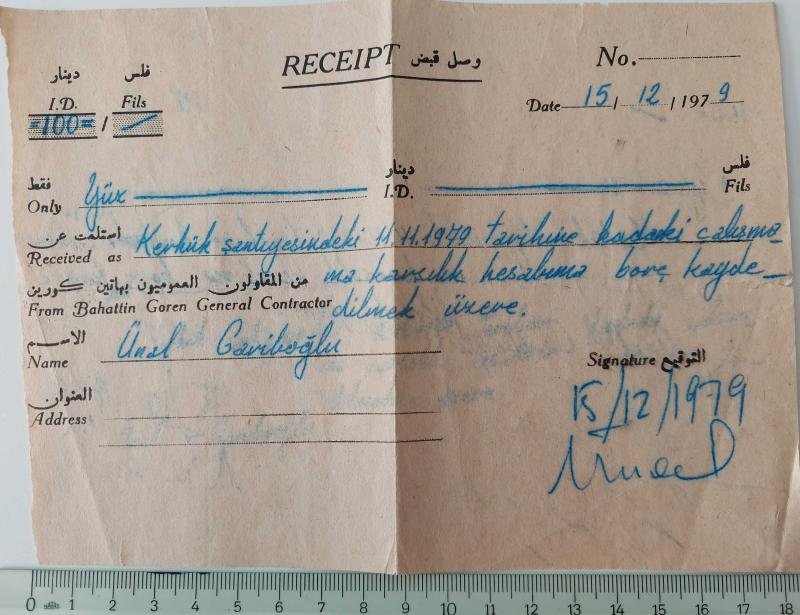 RECEIPT وصل قبض
No.
دينار فلس
I.D. Fils
=100= / —
Date 15 / 12 / 1979
فقط دينار فلس
Only Yüz I.D. Fils
استلمت عن
Received as Kerkük şantiyesindeki 11.11.1979 tarihine kadarki calışma-
من المقاولون العموميون بهاتين كورين ma karşılık hesabıma borç kayde-
From Bahattin Goren General Contractor dilmek üzere.
الاسم
Name Ünal Gariboğlu
التوقيع Signature
العنوان
Address
15/12/1979
Ünal
0 1 2 3 4 5 6 7 8 9 10 11 12 13 14 15 16 17 18